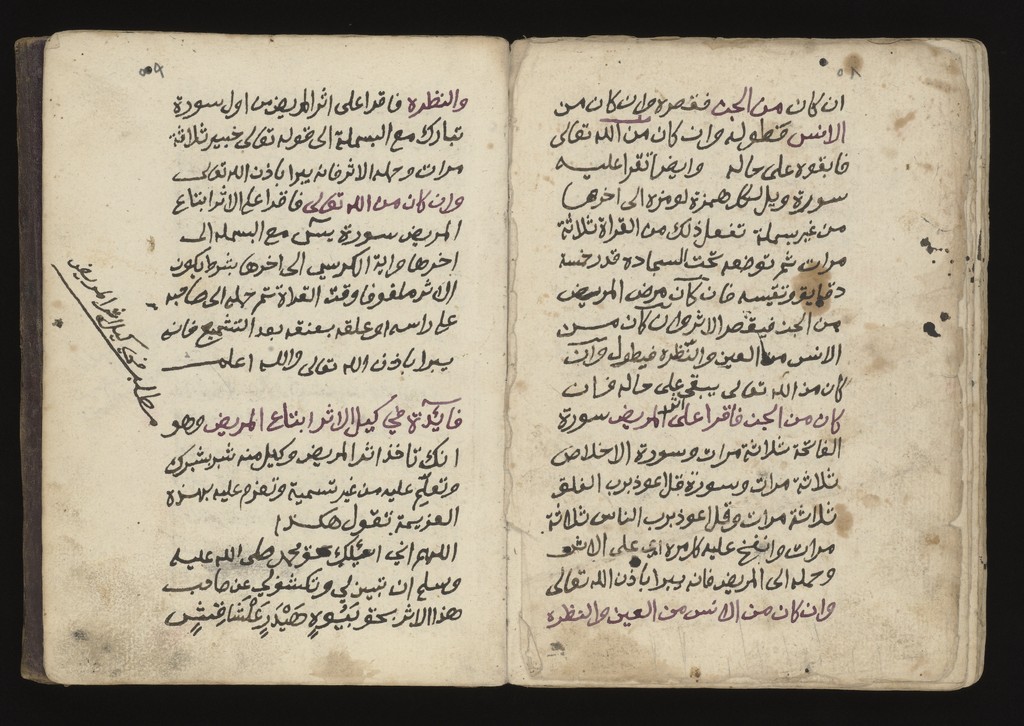 ٥٨
ان كان من الجن فقصره وان كان من
الانس فطوله وان كان من الله تعالى
فابقوه على حاله وايضا تقرا عليه
سورة ويل لكل همزة لومزه الى اخرها
من غير بسملة تفعل ذلك من القراة ثلاثة
مرات ثم توضعه تحت السجاده قدر خمسة
دقايق وتقيسه فان كان مرض المريض
من الجن فيقصر الاثر وان كان من
الانس من العين والنظره فيطول وان
كان من الله تعالى يبقى على حاله فان
كان من الجن فاقرا على اثر المريض سورة
الفاتحة ثلاثة مرات وسورة الاخلاص
ثلاثة مرات وسورة قل اعوذ برب الفلق
ثلاثة مرات وقل اعوذ برب الناس ثلاثة
مرات وانفخ عليه كل مرة على الاثر
وحمله الى المريض فانه يبرا باذن الله تعالى
وان كان من الانس من العين والنظره
٥٩
والنظره فاقرا على اثر المريض من اول سورة
تبارك مع البسملة الى قوله تعالى خبير ثلاثة
مرات وحمله الاثر فانه يبرا باذن الله تعالى
وان كان من الله تعالى فاقرا على الاثر ابتاع
المريض سورة يس مع البسمله الى
اخرها واية الكرسي الى اخرها بشرط يكون
الاثر ملفوفا وقت القراة ثم حمله الى صاحبه
على راسه او علقه بعنقه بعد التشميع فانه
يبرا باذن الله تعالى والله اعلم
مطلب في كيل اثر المريض
فايدة في كيل الاثر ابتاع المريض وهو
انك تاخذ اثر المريض وكيل منه شبر بشبرك
وتعلم عليه من غير تسمية وتعزم عليه بهذه
العزيمة تقول هكذا
اللهم اني اسئلك بحق محمد صلى الله عليه
وسلم ان تبين لي وتكشف لي عن صاحب
هذا الاثر بحق